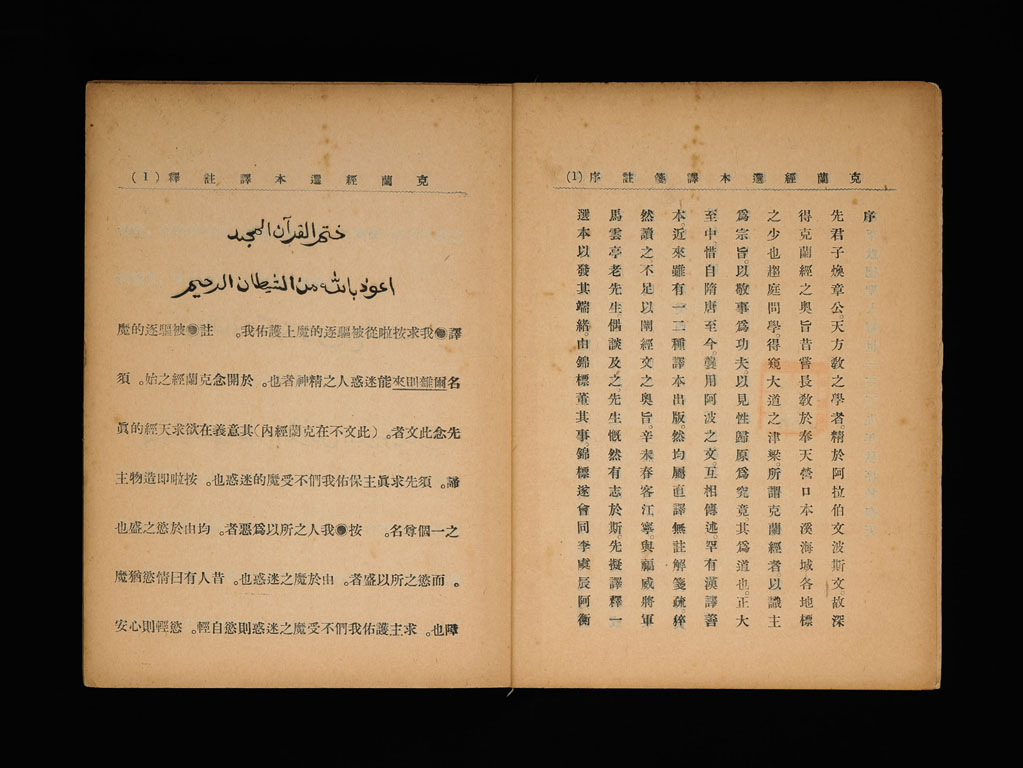 克蘭經選本譯箋註序(1)
序
先君子煥章公。天方教之學者。精於阿拉伯文波斯文。故深
得克蘭經之奧旨昔嘗長教於奉天營口本溪海城各地標
之少也趨庭問學。得窺大道之津梁。所謂克蘭經者以識主
爲宗旨。以敬事爲功夫以見性歸原爲究竟其爲道也。正大
至中。惜自隋唐至今。襲用阿波之文。互相傳述。罕有漢譯善
本近來雖有一二種譯本出版。然均屬直譯無註解箋疏。稡
然讀之。不足以闡經文之奧旨。辛未春客江寧。與福威將軍
馬雲亭老先生偶談及之。先生慨然有志於斯。先擬譯釋一
選本以發其端緒由錦標董其事。錦標遂會同李虞辰阿衡
克蘭經選本譯註釋(1)
ختم القرآن المجيد
اعوذ بالله من الشيطان الرجيم
譯●我求按啦從被驅逐的魔上護佑我。註●被驅逐的魔
名爾雖則來能迷惑人之精神者也。於開念克蘭經之始。須
先念此文者。(此文不在克蘭經內)其意義在欲求天經的眞
諦。須先求眞主保佑我們不受魔的迷惑也。按啦即造物主
之一個尊名。按●我人之所以爲惡者。均由於慾之盛也
。而慾之所以盛者。由於魔之迷惑也。昔人有曰情慾猶魔
障也。求主護佑我們不受魔之迷惑則慾自輕。慾輕則心安